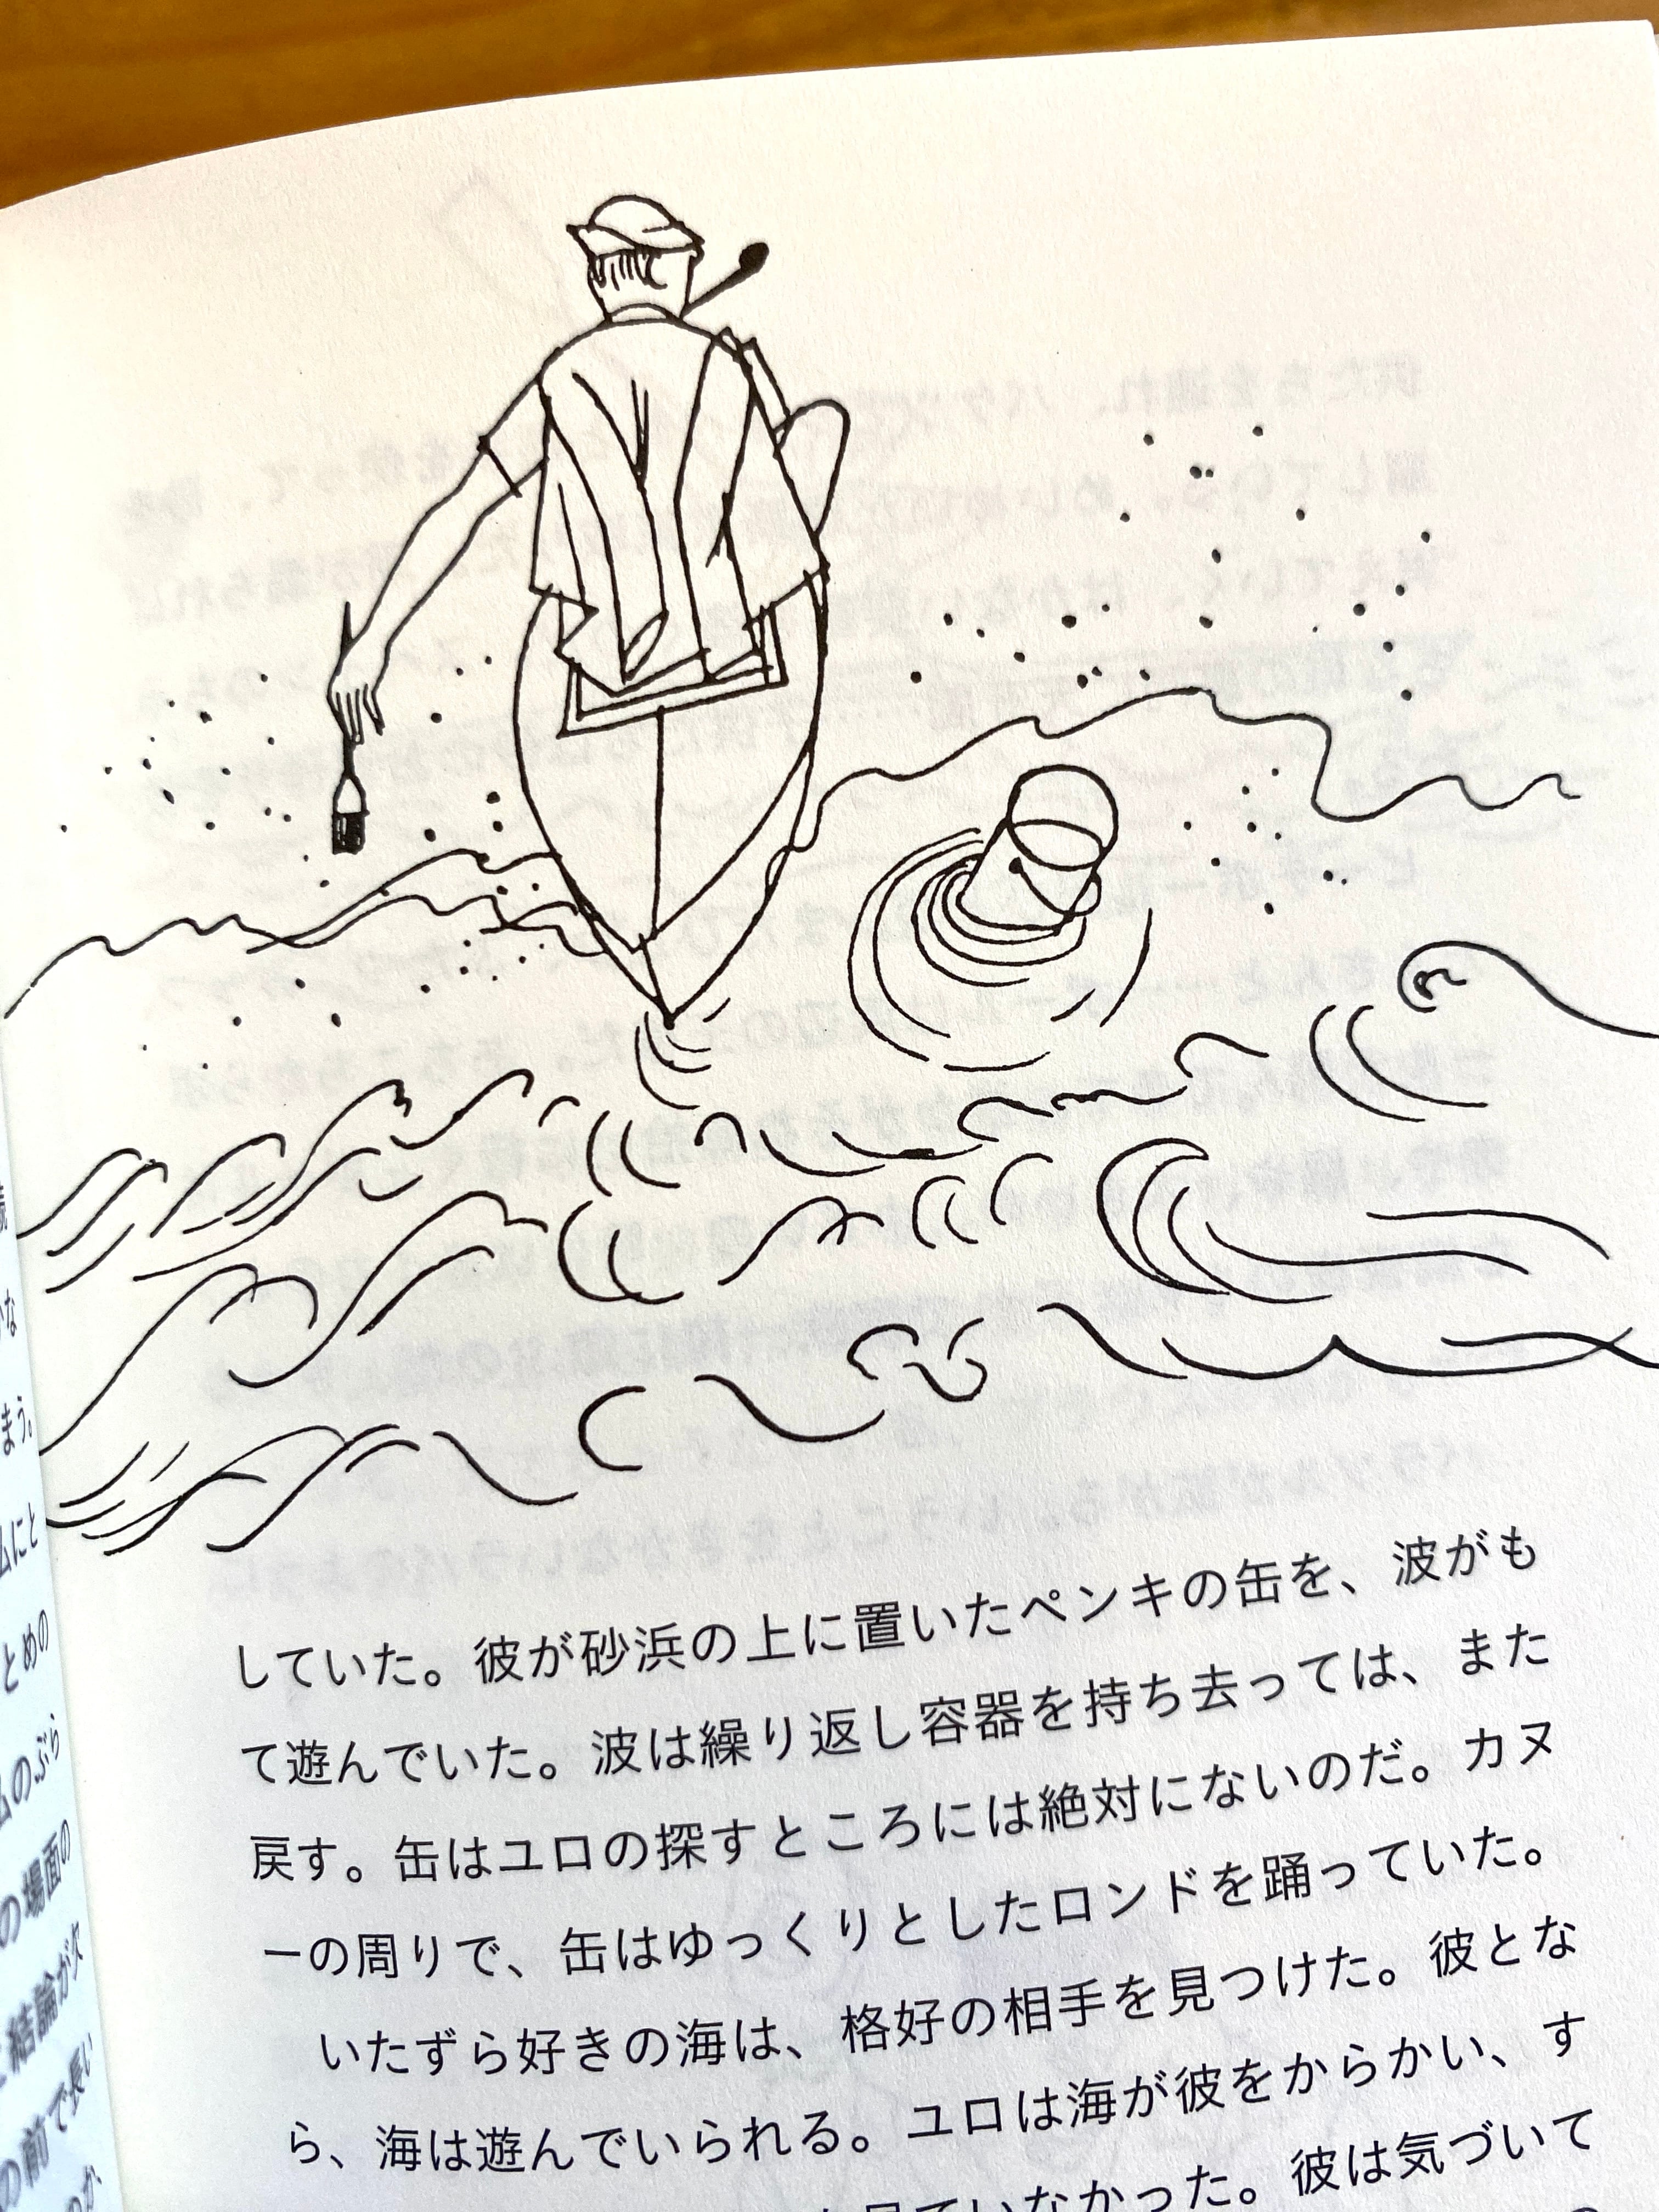 していた。彼が砂浜の上に置いたペンキの缶を、波がも
て遊んでいた。波は繰り返し容器を持ち去っては、また
戻す。缶はユロの探すところには絶対にないのだ。カヌ
ーの周りで、缶はゆっくりとしたロンドを踊っていた。
いたずら好きの海は、格好の相手を見つけた。彼とな
ら、海は遊んでいられる。ユロは海が彼をからかい、す
ていなかった。彼は気づいて
まう。
にと
とめの
のぶら
の場面の
結論が次
の前で長い